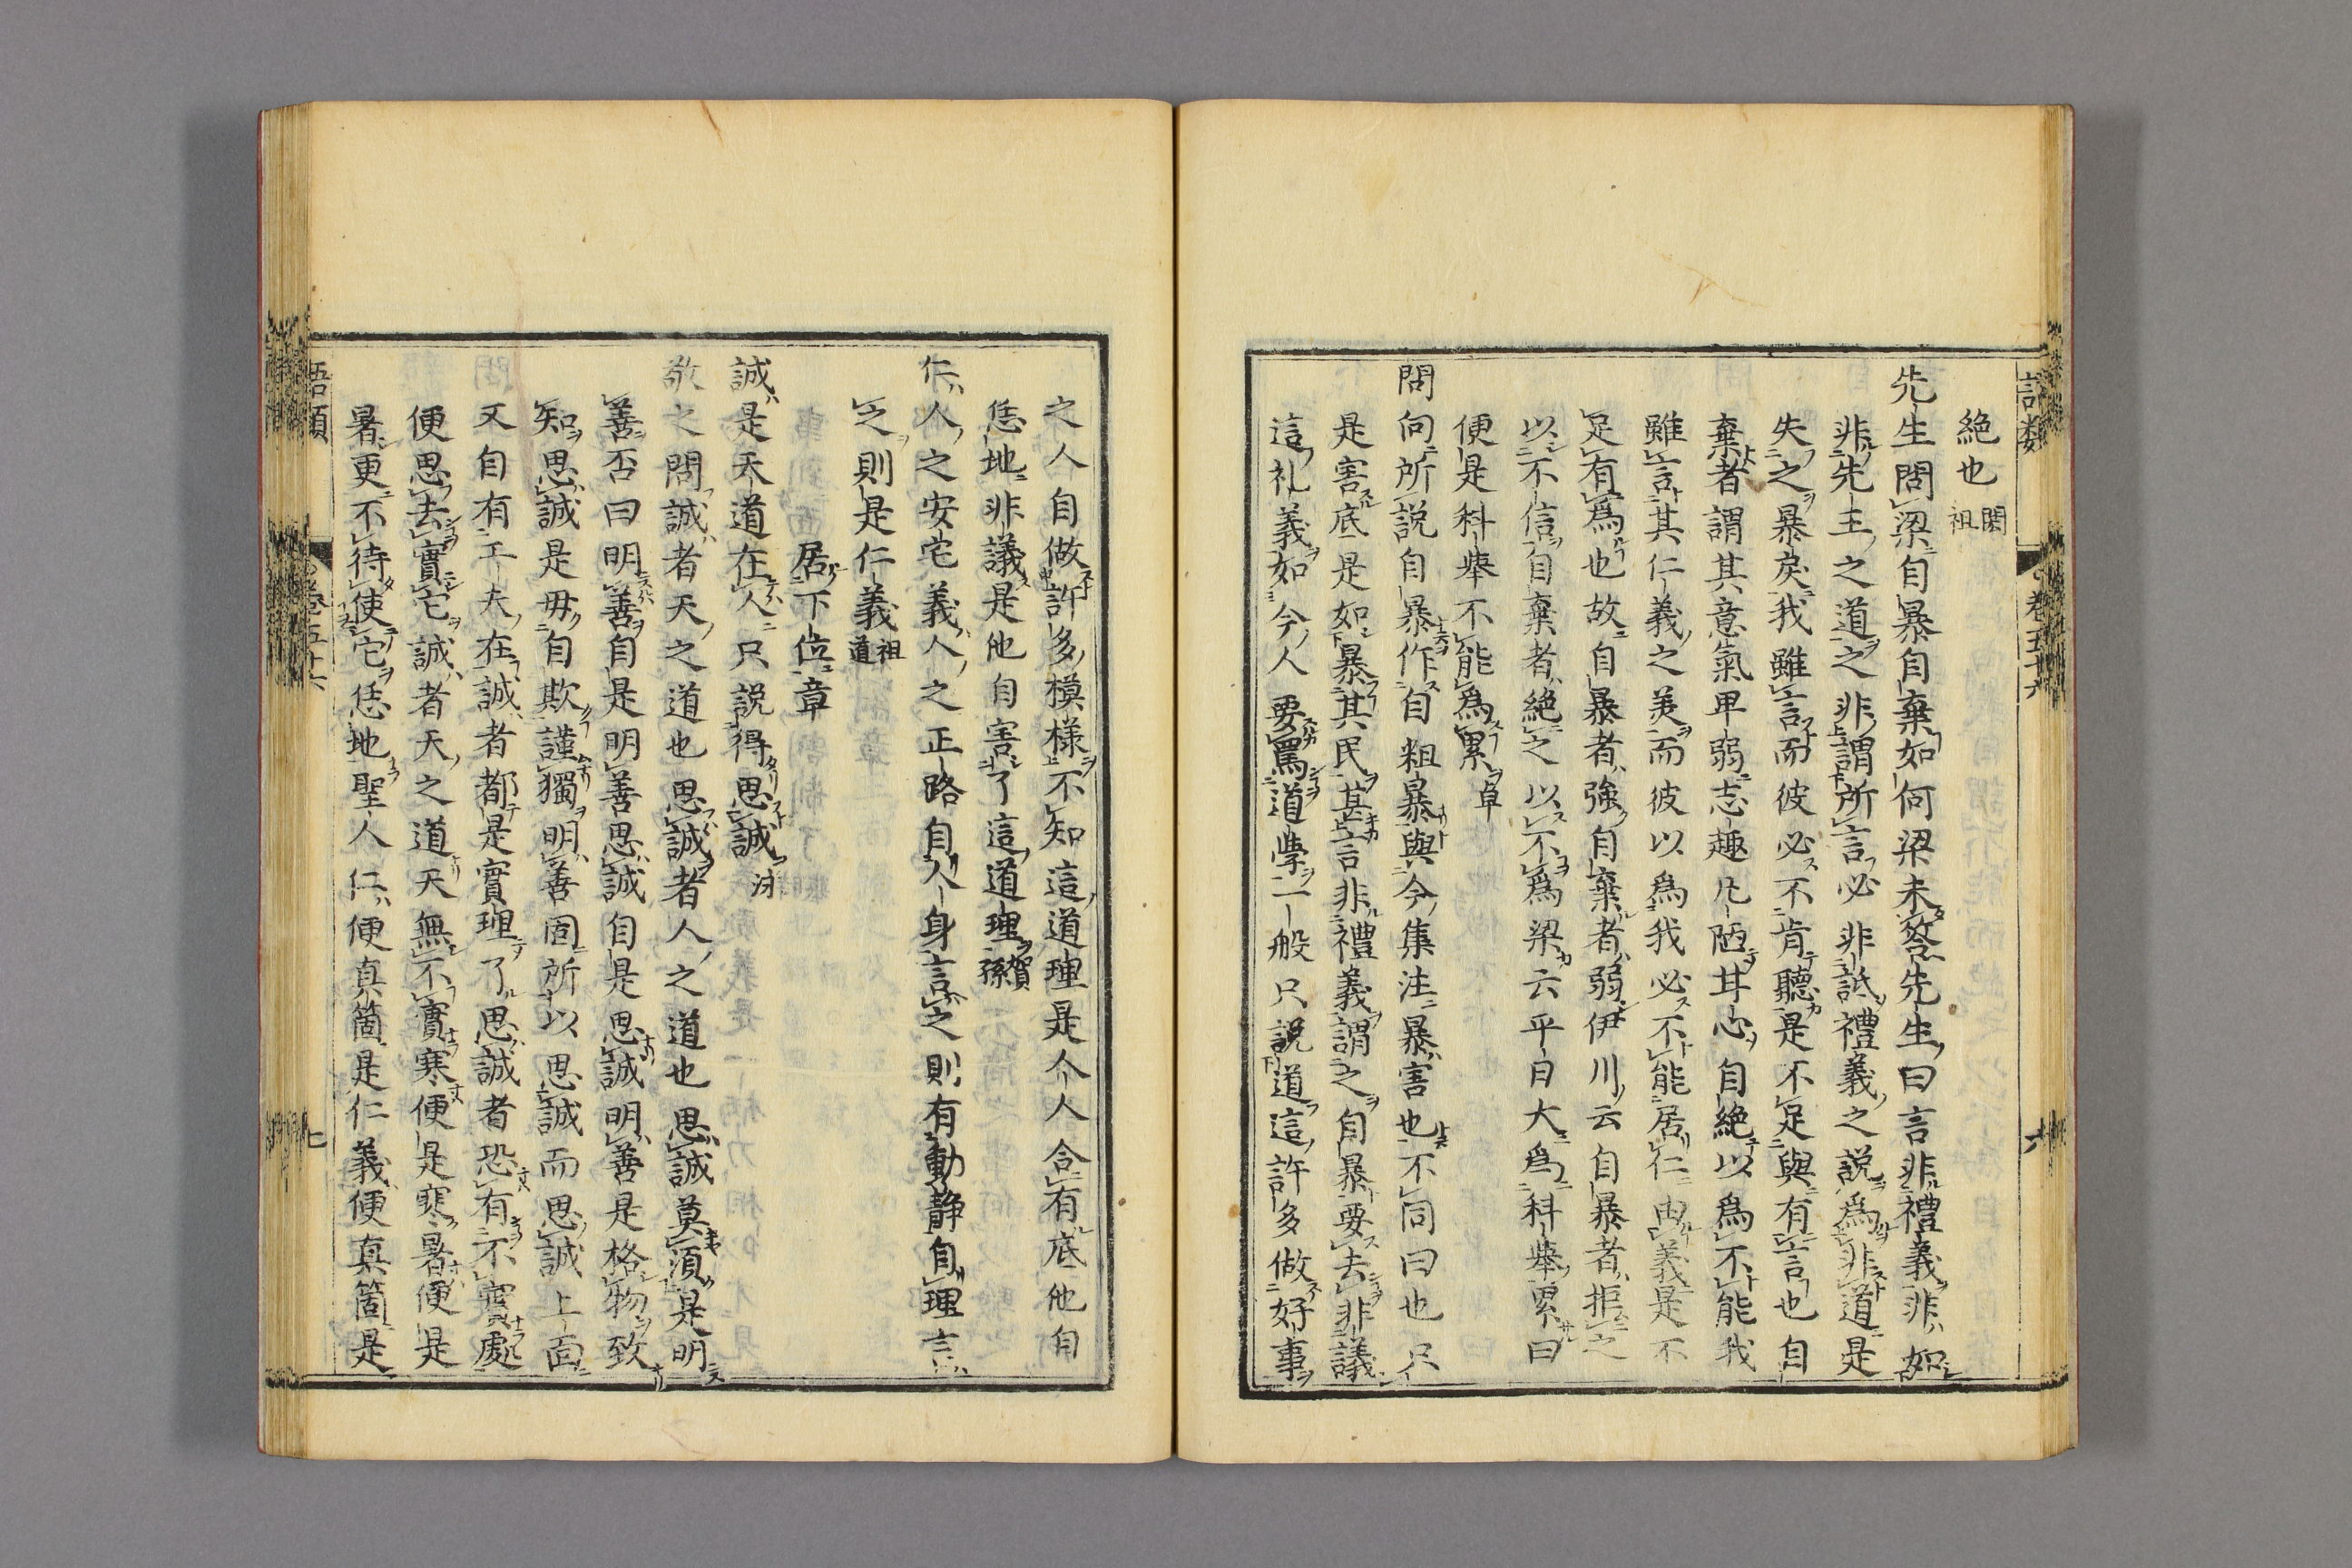 語類 卷五十六 六
絶也 閎祖
先生問梁自暴自棄如何梁未答先生曰言非禮義非如
非先王之道之非謂所言必非詆禮義之説爲非道是
失之暴戾我雖言而彼必不肯聽是不足與有言也自
棄者謂其意氣卑弱志趣凡陋甘心自絶以爲不能我
雖言其仁義之美而彼以爲我必不能居仁由義是不
足有爲也故自暴者強自棄者弱伊川云自暴者拒之
以不信自棄者絶之以不爲梁云平日大爲科舉累曰
便是科舉不能爲累 卓
問向所説自暴作自粗暴與今集注暴害也不同曰也只
是害底是如暴其民甚言非禮義謂之自暴要去非議
這礼義如今人要罵道學一般只説道這許多做好事
之人自做許多模樣不知這道理是人人合有底他自
恁地非議是他自害了這道理 賀孫
仁人之安宅義人之正路自人身言之則有動静自理言
之則是仁義 祖道
居下位章
誠是天道在人只説得思誠 泳
敬之問誠者天之道也思誠者人之道也思誠莫須是明
善否曰明善自是明善思誠自是思誠明善是格物致
知思誠是毋自欺謹獨明善固所以思誠而思誠上面
又自有工夫在誠者都是實理了思誠者恐有不實處
便思去實它誠者天之道天無不實寒便是寒暑便是
暑更不待使它恁地聖人仁便真箇是仁義便真箇是
語類 卷五十六 七